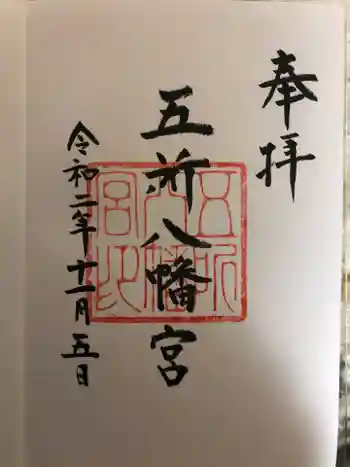 奉拝
五所八幡宮
令和二年十一月五日
五所八幡宮印